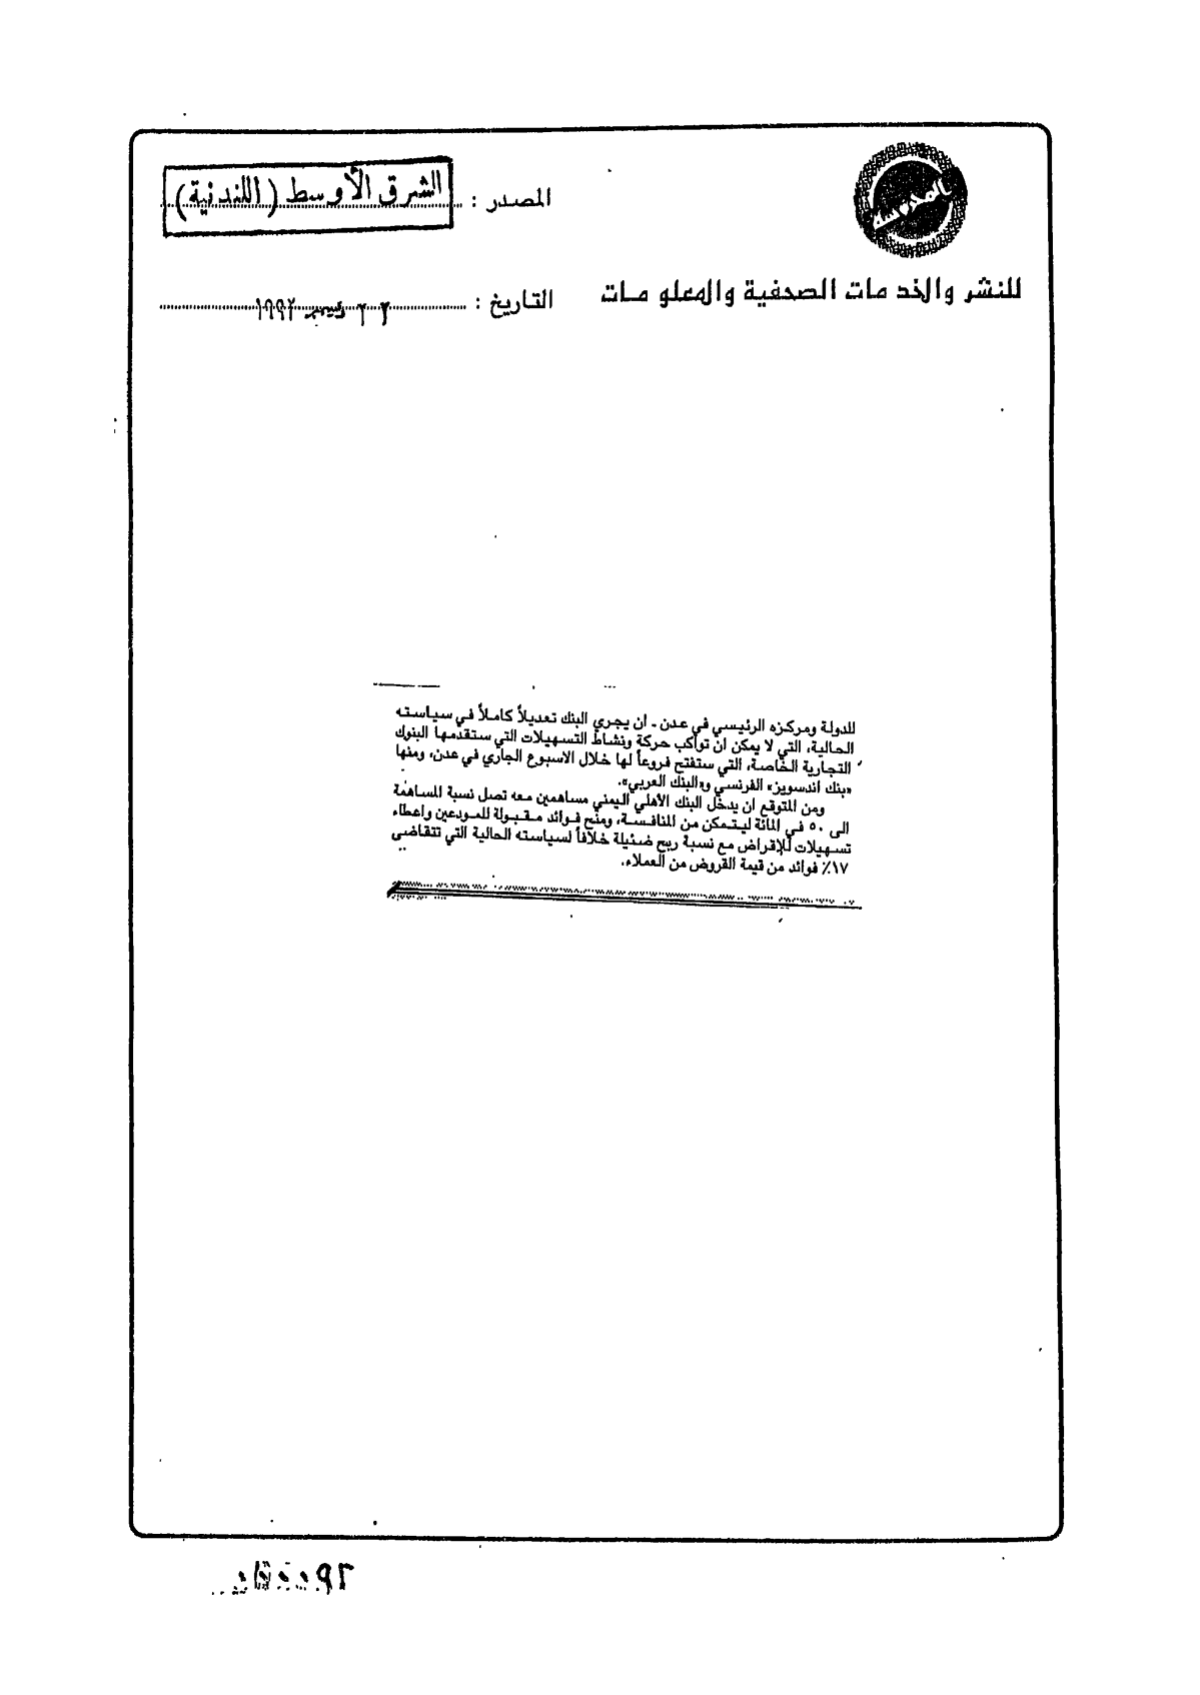 المصدر : الشرق الأوسط (اللندنية)
للنشر والخدمات الصحفية والمعلومات
التاريخ : ديسمبر ١٩٩٢
للدولة ومركزه الرئيسي في عدن - ان يجري البنك تعديلاً كاملاً في سياسته
الحالية، التي لا يمكن ان تواكب حركة ونشاط التسهيلات التي ستقدمها البنوك
التجارية الخاصة، التي ستفتح فروعاً لها خلال الاسبوع الجاري في عدن، ومنها
«بنك اندسويز» الفرنسي و«البنك العربي».
ومن المتوقع ان يدخل البنك الأهلي اليمني مساهمين معه تصل نسبة المساهمة
الى ٥٠ في المائة ليتمكن من المنافسة، ومنح فوائد مقبولة للمودعين واعطاء
تسهيلات للإقراض مع نسبة ربح ضئيلة خلافاً لسياسته الحالية التي تتقاضى
١٧٪ فوائد من قيمة القروض من العملاء.